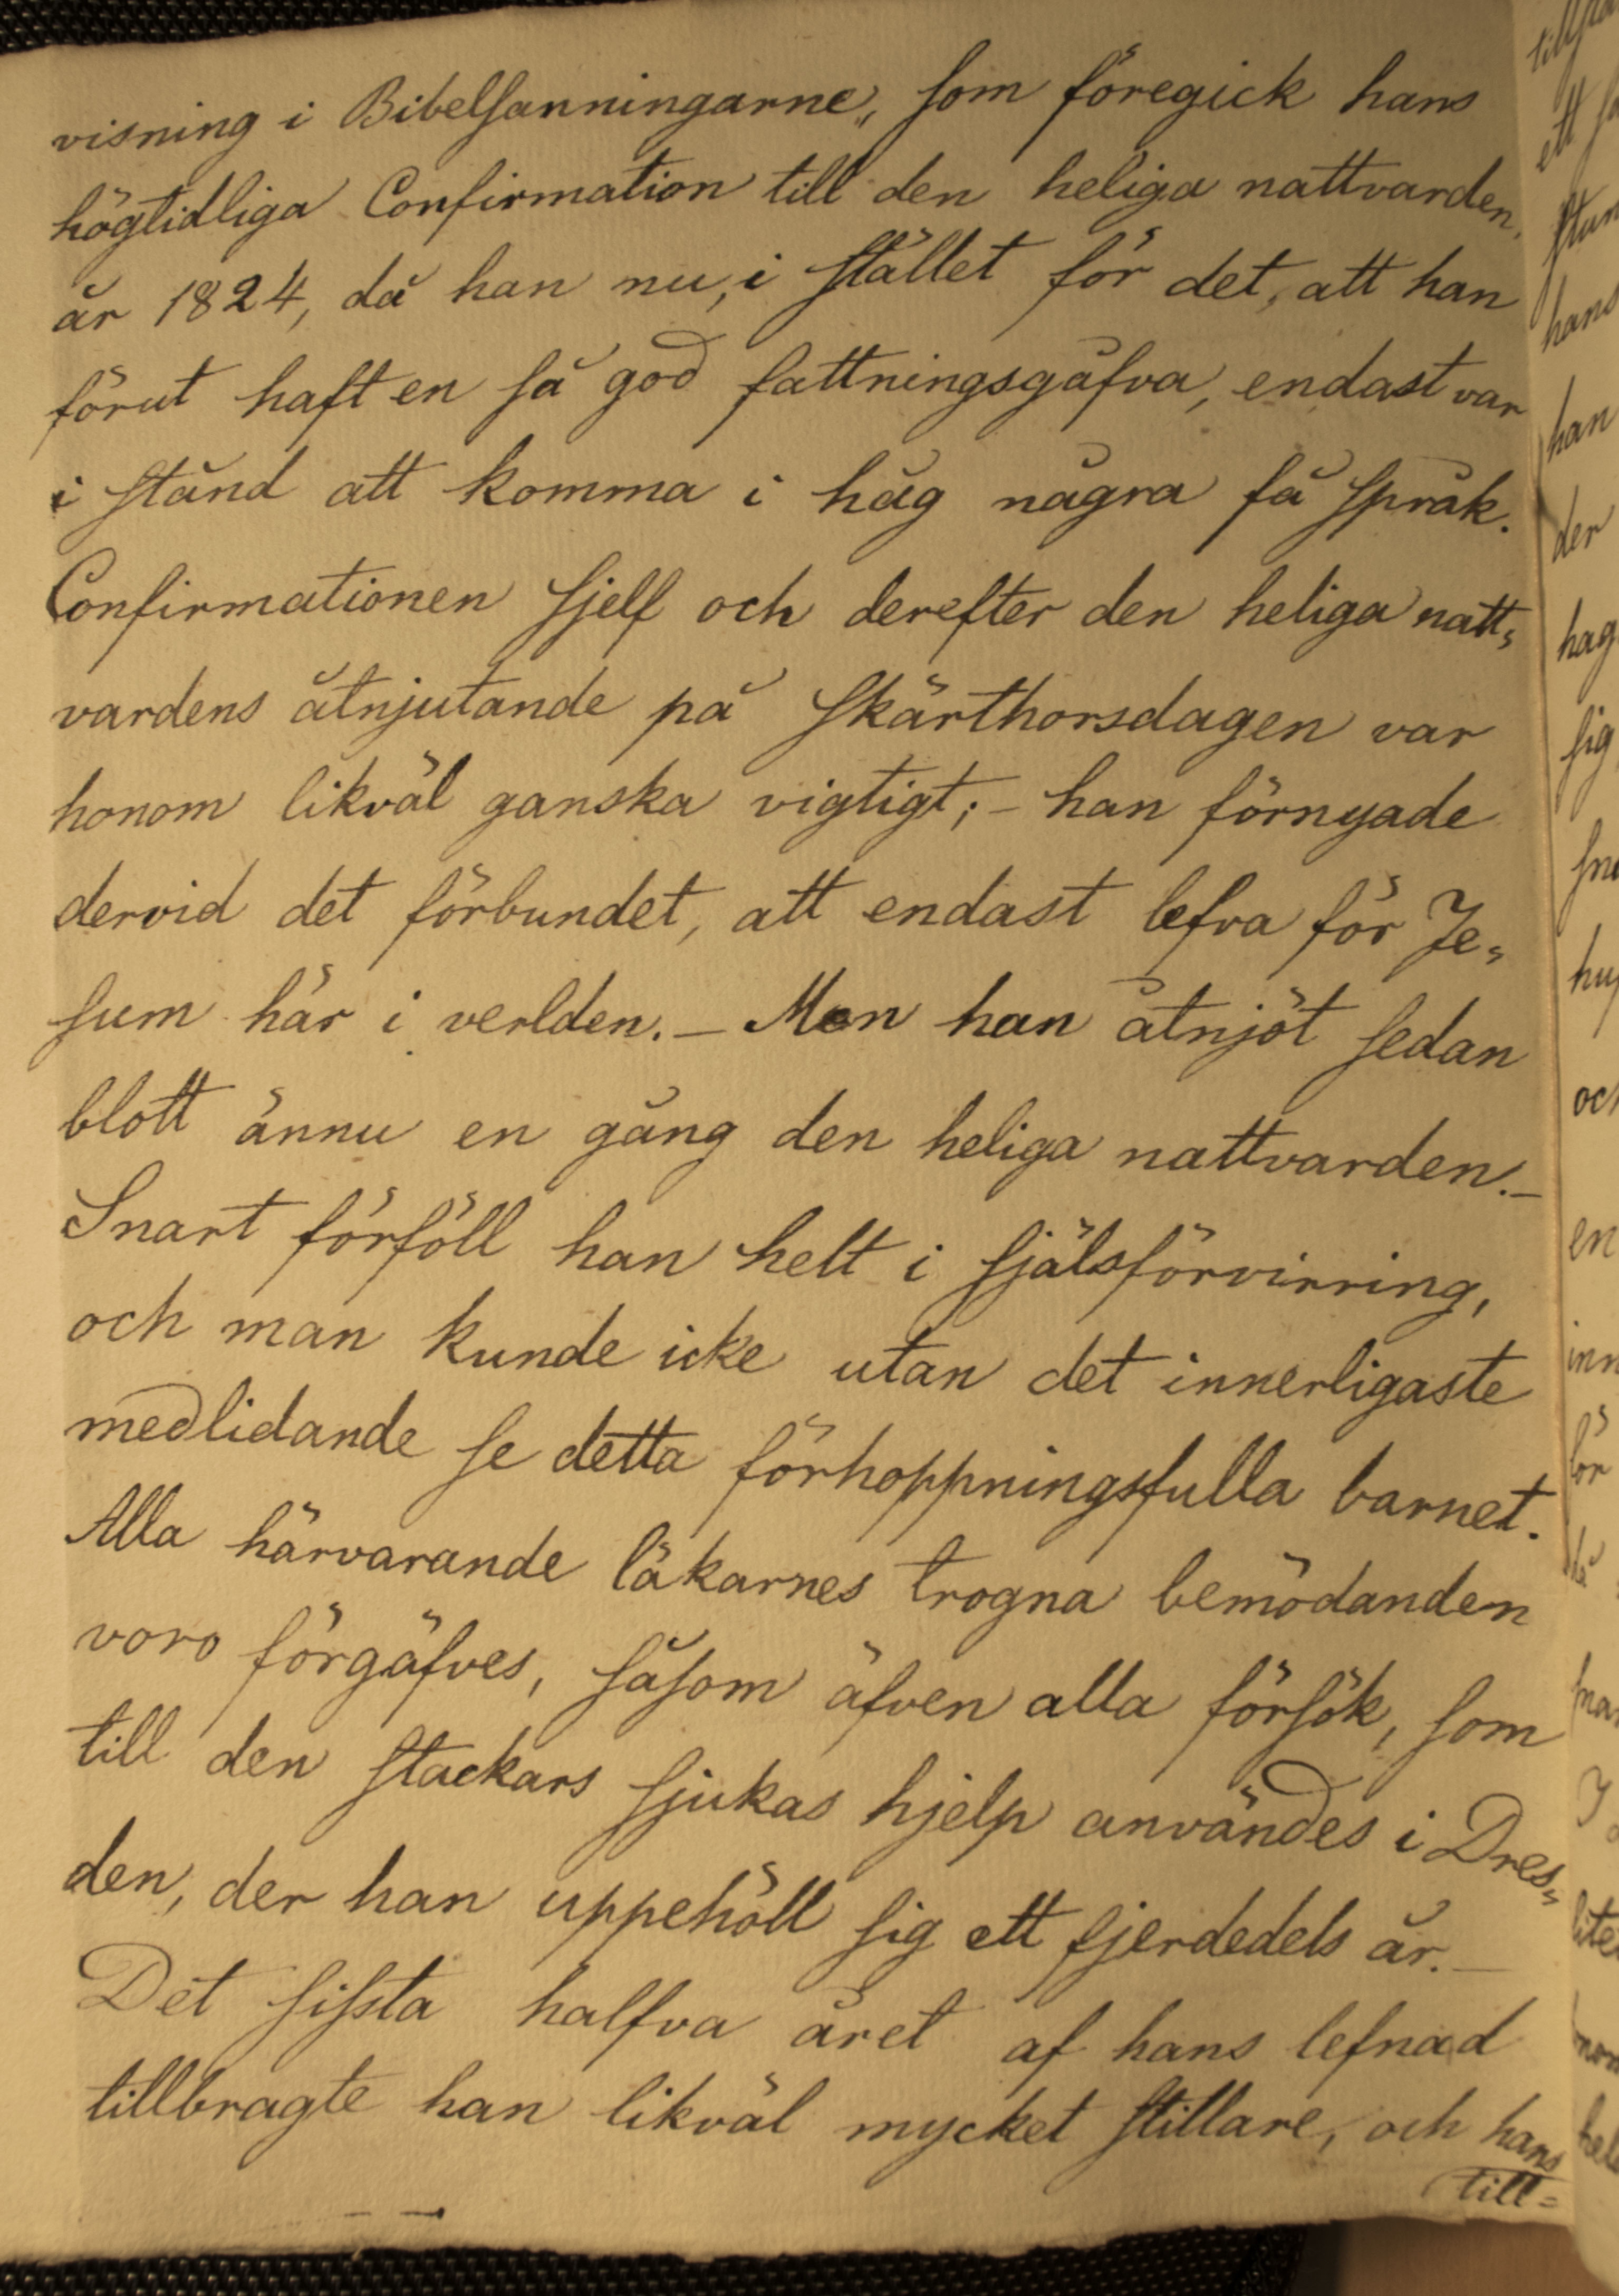 visning i Bibelsanningarne, som föregick hans
högtidliga Confirmation till den heliga nattvarden,
år 1824, då han nu, i stället för det, att han
förut haft en så god fattningsgåfva, endast var
i stånd att komma i håg några få språk.
Confirmationen sjelf och derefter den heliga natt=
vardens åtnjutande på Skärthorsdagen var
honom likväl ganska vigtigt; - han förnyade
dervid det förbundet, att endast lefva för Je=
sum här i verlden. - Men han åtnjöt sedan
blott ännu en gång den heliga nattvarden. -
Snart förföll han helt i själsförvirring,
och man kunde icke utan det innerligaste
medlidande se detta förhoppningsfulla barnet.
Alla härvarande läkarnes trogna bemödanden
voro förgäfves, såsom äfven alla försök, som
till den stackars sjukas hjelp användes i Dres=
den, der han uppehöll sig ett fjerdedels år. -
Det sissta halfva året af hans lefnad
tillbragte han likväl mycket stillare, och hans
till=
ett
han
der
hag
sig
och
en
för